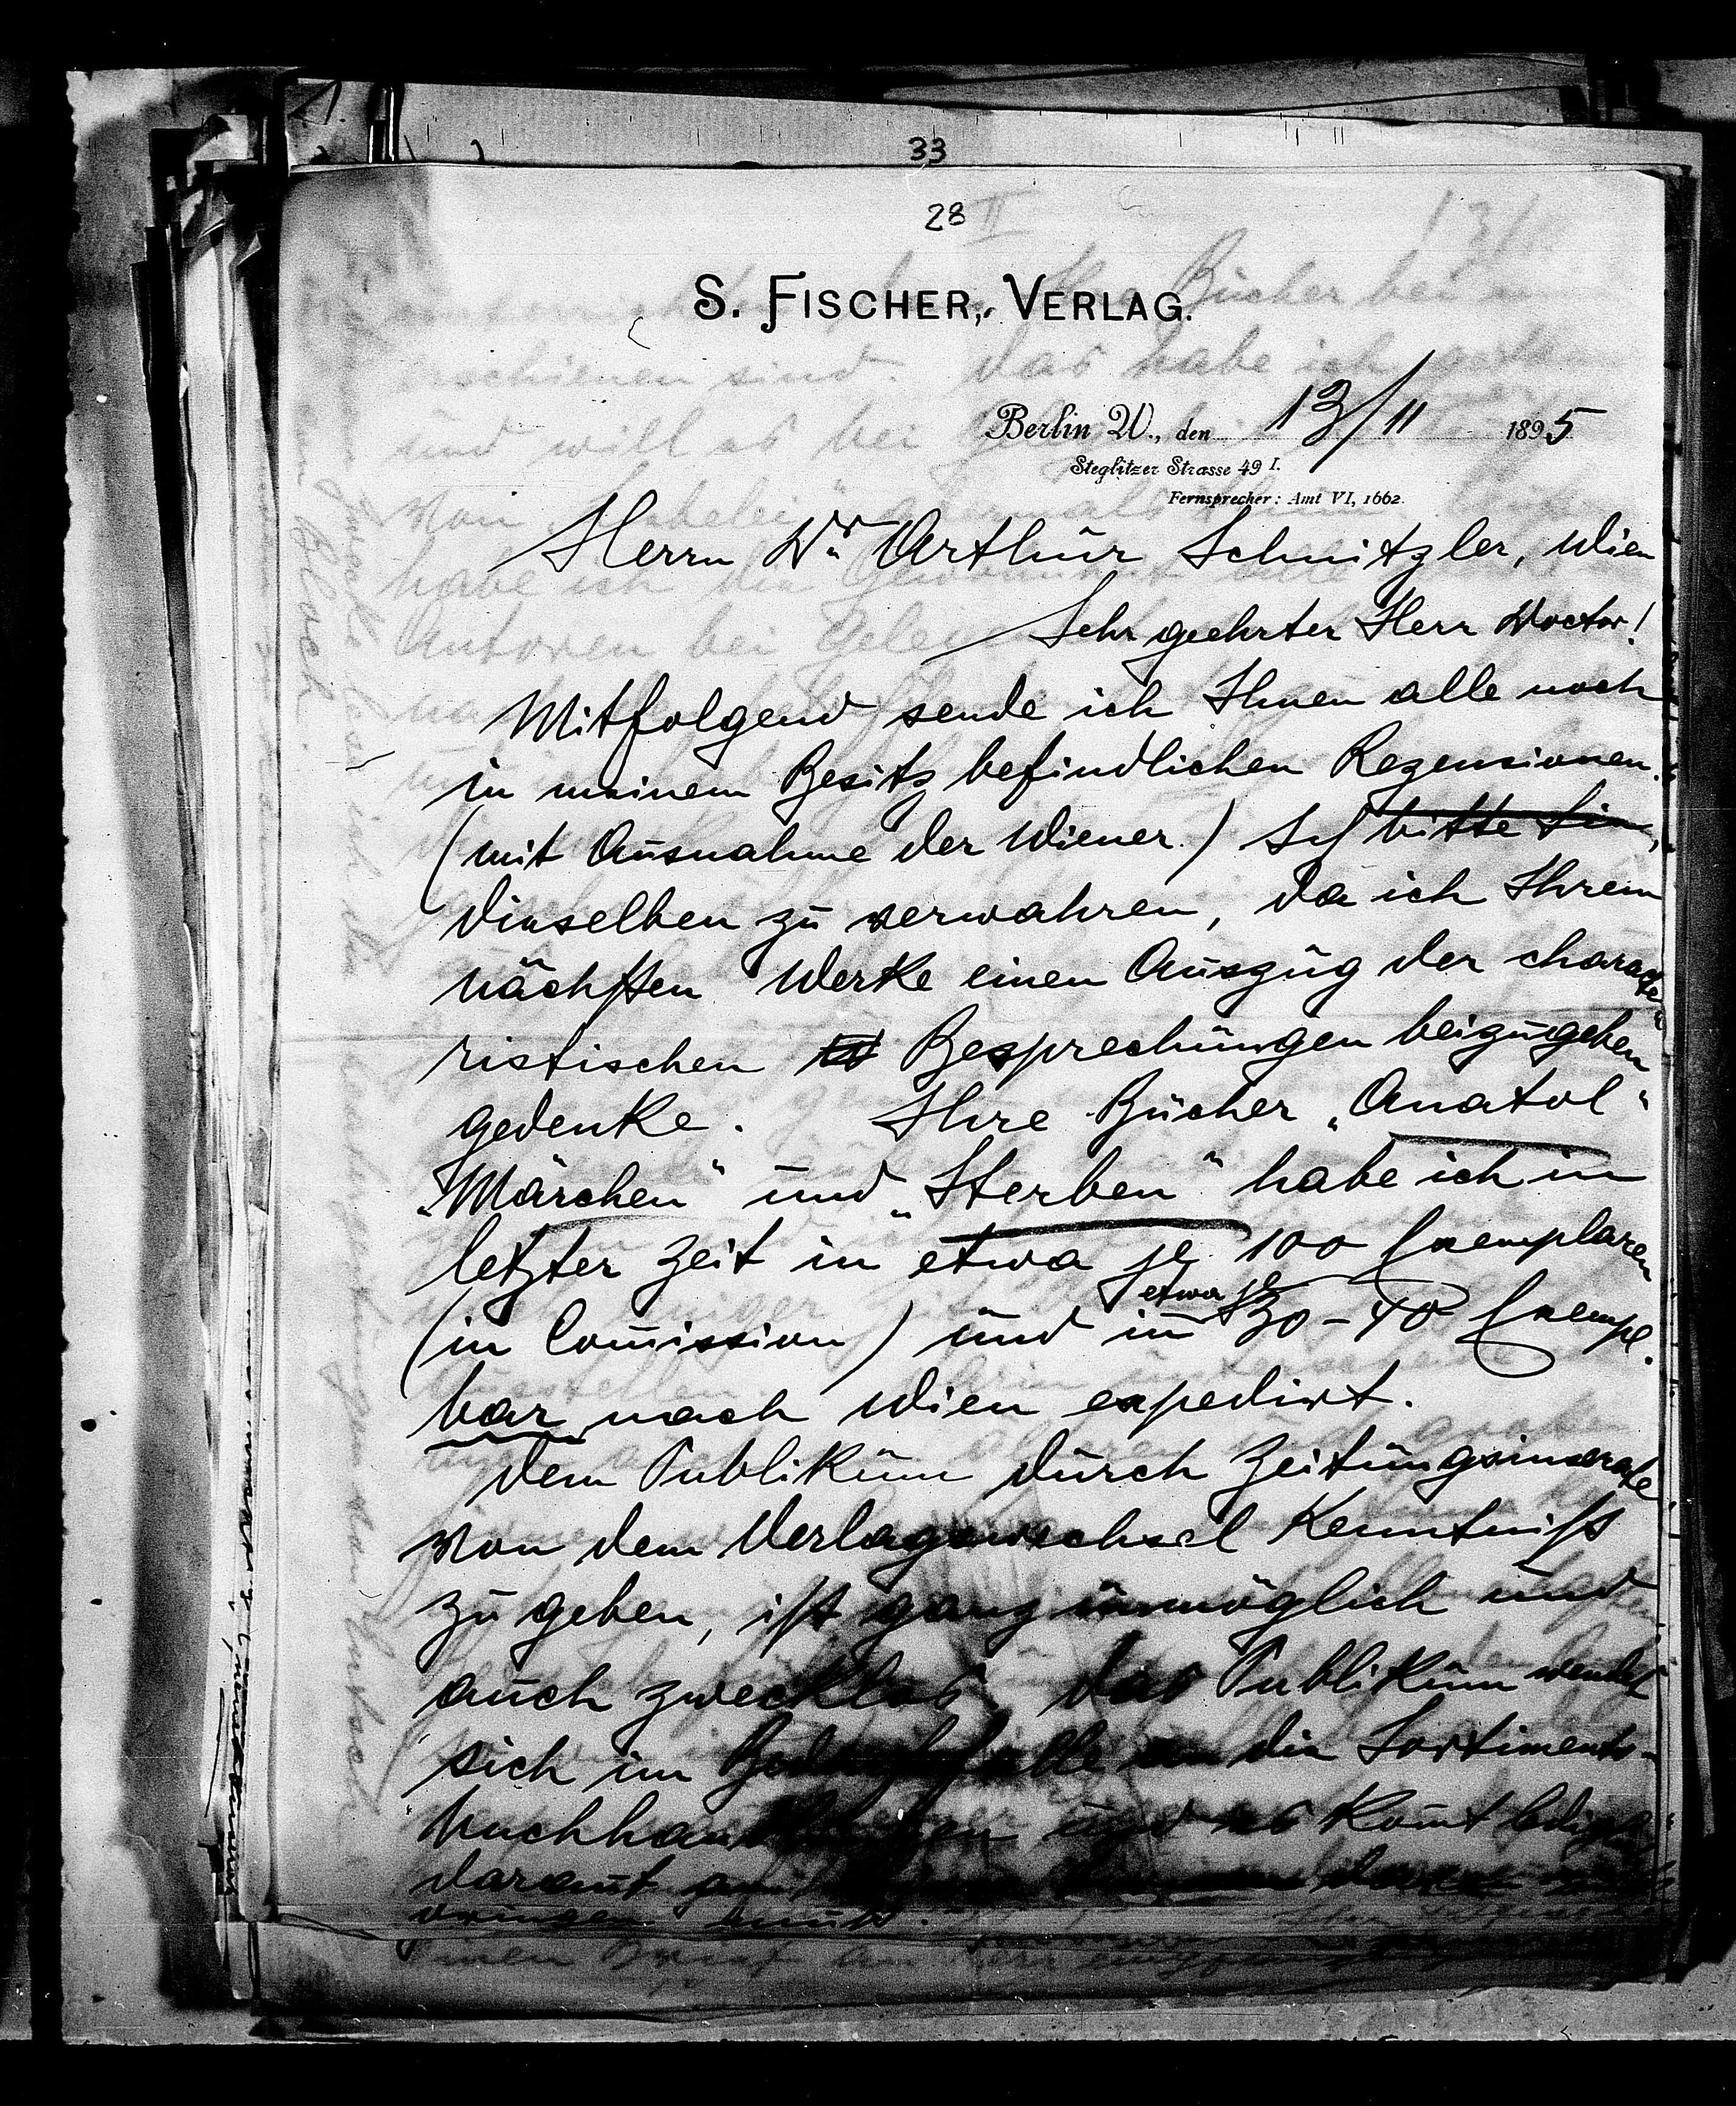 33
28
S. FISCHER, VERLAG.
Berlin W., den 13/11 1895
Steglitzer Strasse 49 I.
Fernsprecher: Amt VI, 1662.
Herrn Dr Arthur Schnitzler, Wien
Sehr geehrter Herr Doctor!
Mitfolgend sende ich Ihnen alle noch
in meinem Besitz befindlichen Rezensionen.
(mit Ausnahme der Wiener.) Ich bitte Sie,
dieselben zu verwahren, da ich Ihrem
nächsten Werke einen Auszug der characte-
ristischen Besprechungen beizugeben
gedenke. Ihre Bücher „Anatol“
„Märchen“ und „Sterben“ habe ich in
letzter Zeit in etwa je 100 Exemplaren
(in Comission) und in etwa je 30-40 Exempl.
bar nach Wien expedirt.
Dem Publikum durch Zeitungsinserate
von dem Verlagswechsel Kenntniss
zu geben, ist ganz unmöglich und
auch zwecklos. Das Publikum wendet
sich im Bedarfsfalle an die Sortiments-
buchhandlungen und es komt ledigl
darauf